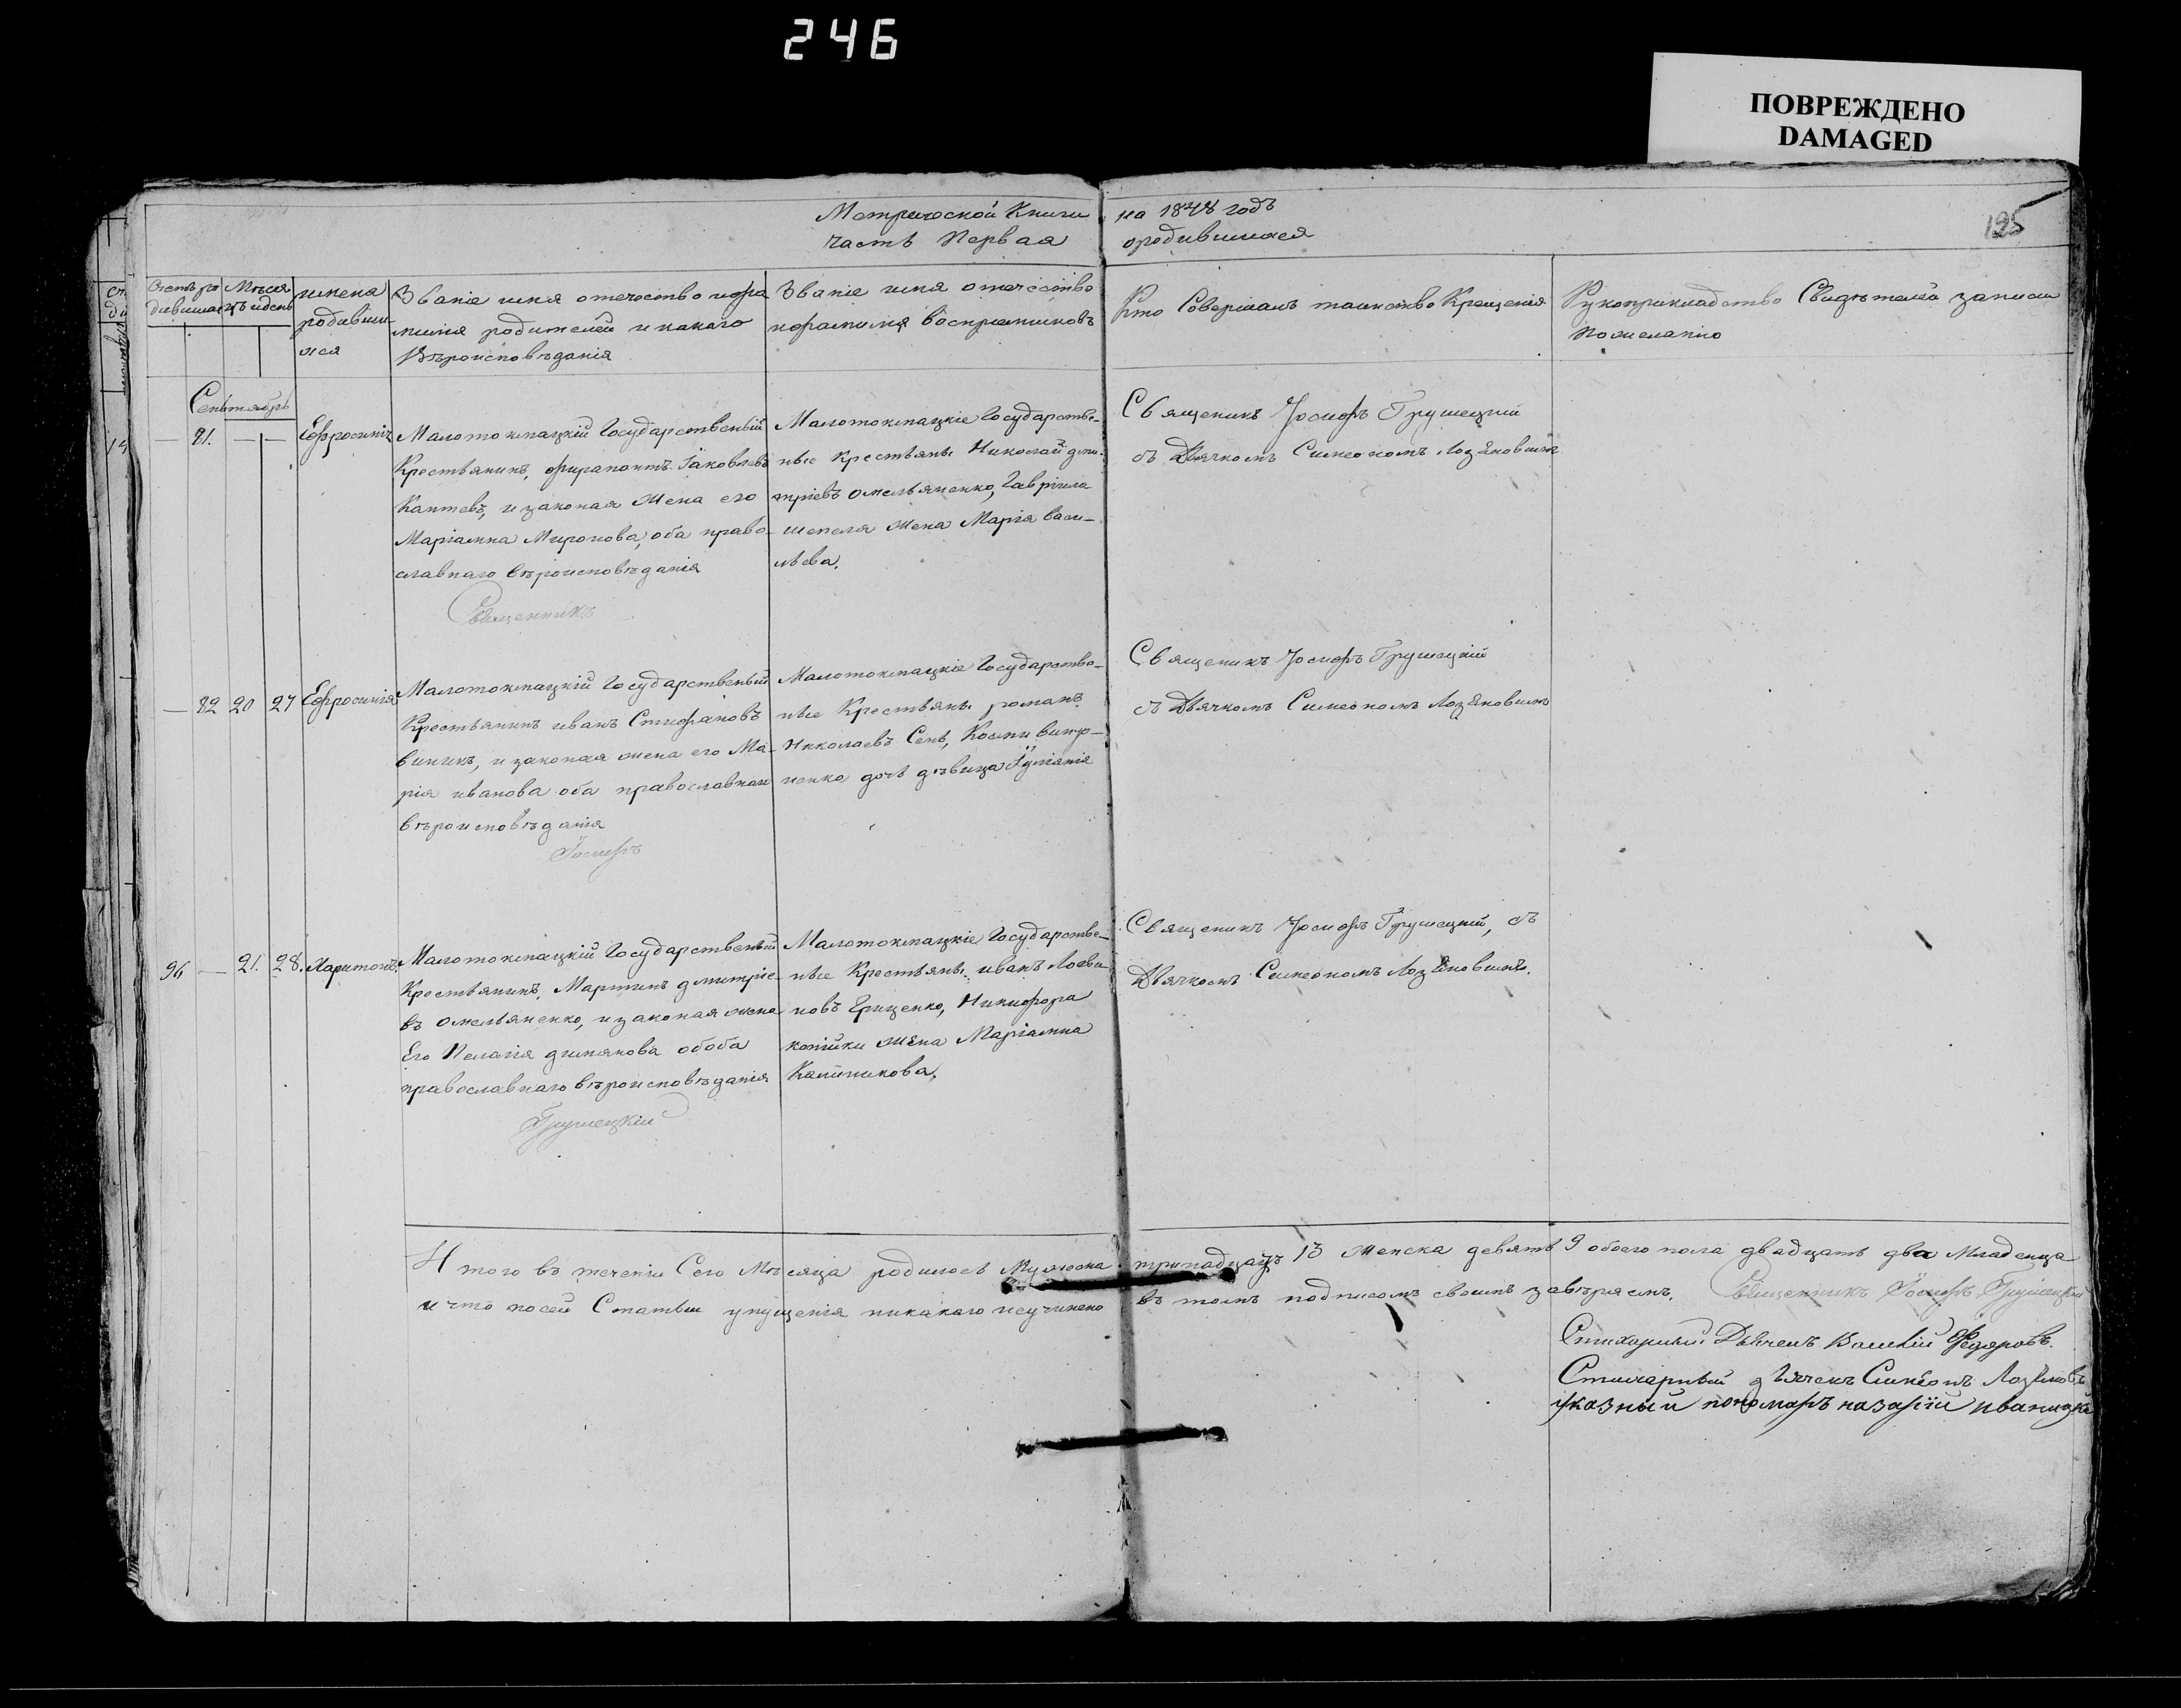 246
ПОВРЕЖДЕНО
DAMAGED
Метрической Книги на 1848 годъ
часть Первая ородившихся
195
Счетъ ро
дившихся
Мѣся
цъ идень
имена
родивши
мся
Званіе имя отечество ифа
милія родителей и какого
Вѣроисповѣданія
Званіе имя отечество
ифамилія воспріемниковъ
Кто Совершалъ таинство Крещенія
Рукоприкладство Свидѣтелей записи
пожеланію
Сентябрь
— 81. — — Ефросинія
Малотокмацкій Государственый
Крестьянинъ, фирапонтъ Іаковлевъ
Каптевъ, изаконая жена его
Маріамна Миронова, оба право
славнаго вѣроисповѣданія
Священникъ
Малотокмацкіе Государстве-
ные крестьяне Николай дми-
тріевъ омельяненко, Гавріила
шепеля жена Марія васи-
льева.
Священикъ Іосифъ Грушецкій
съ Дьячкомъ Симеономъ Лозяновимъ
— 82 20 27 Ефросинія
Малотокмацкій Государственый
Крестьянинъ иванъ Стифановъ
виникъ, и законая жена его Ма-
рія иванова оба православнаго
вѣроисповѣданія
Іосифъ
Малотокмацкіе Государстве-
ные Крестьяне романъ
Николаевъ Сень, Косми витр-
ненка дочь дѣвица Іуліанія
Священикъ Іосифъ Грушецкій
съ Дьячкомъ Симеономъ Лозяновимъ
96 — 21. 28. Харитонъ.
Малотокмацкій Государственый
Крестьянинъ, Мартинъ дмитріе-
въ омельяненко, изаконая жена
Его Пелагія димянова обоба
православнаго вѣроисповѣданія
Грушецкій
Малотокмацкіе Государстве-
ные Крестьяне иванъ Логви-
новъ Гриценко, Никифора
копійки жена Маріамна
Калиникова.
Священикъ Іосифъ Грушецкій, съ
Дьячкомъ Симеономъ Лозяновимъ.
Итого въ теченіи Сего Мѣсяца родилось Мужеска тринадцать 13 женска девять 9 обоего пола двадцать два Младенца
и что посей Статьи упущенія никакаго неучинено въ томъ подписомъ своимъ завѣряемъ. Священникъ Іосифъ Грушецкій
Стихарный Дьячекъ Василій Федоровъ.
Стихарный дьячекъ Симеонъ Лозяновъ
указный пономарь назарій иваницкій